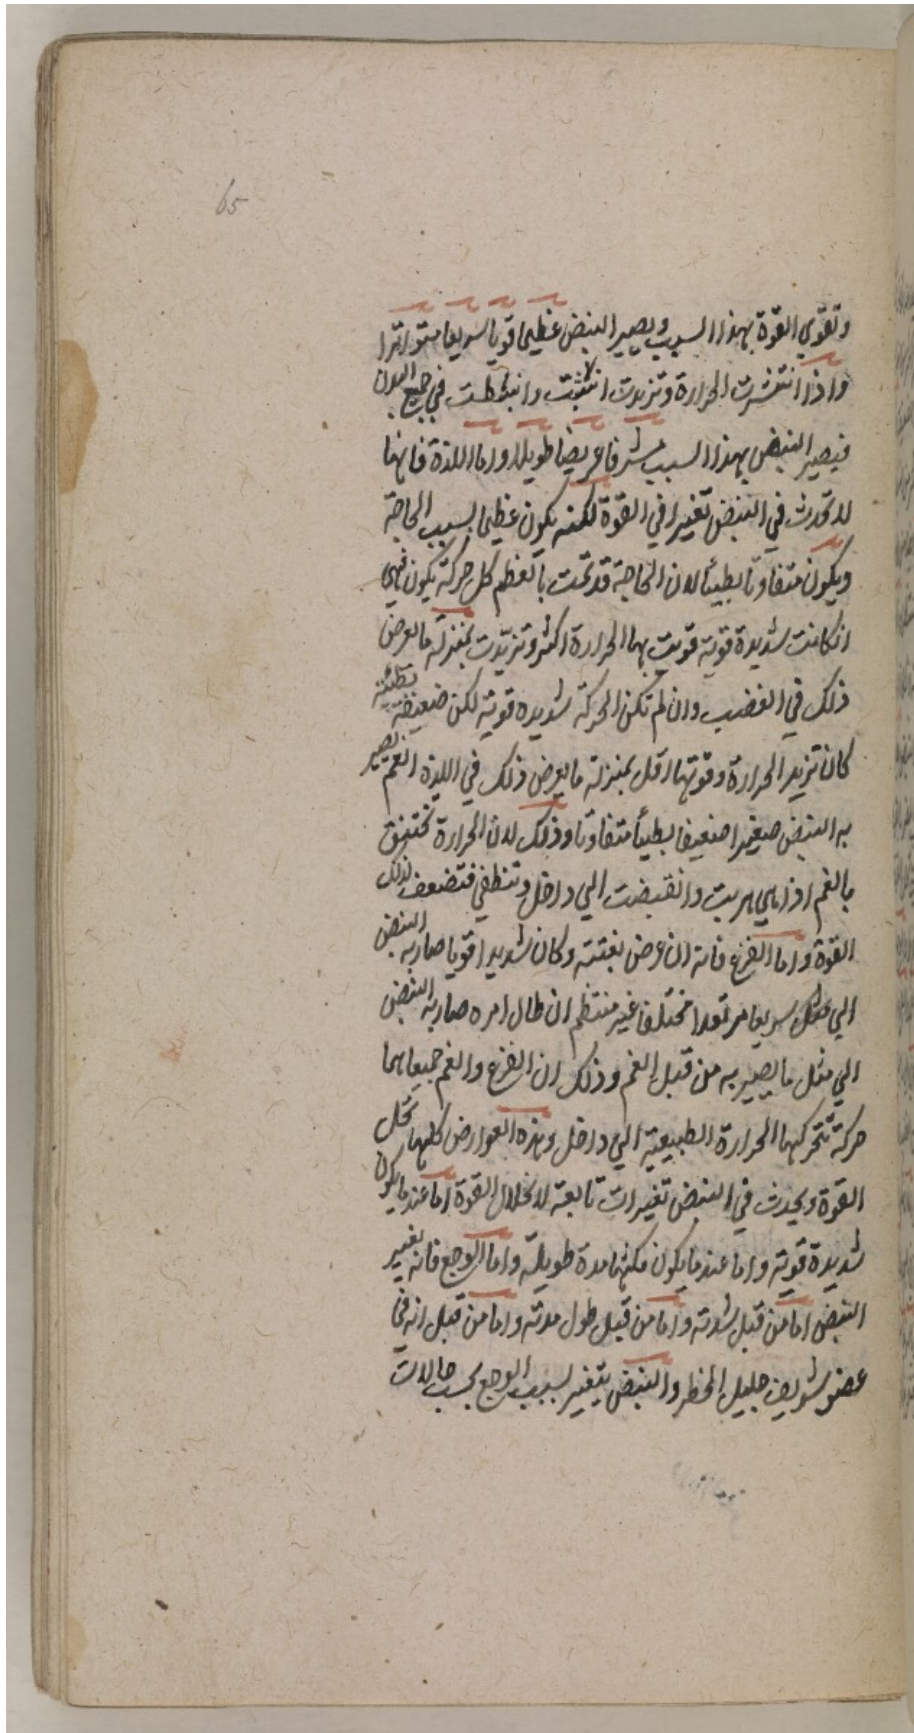 65
وتقوي القوة بهذا السبب ويصير النبض عظيما قويا سريعا متواترا
واذا انتشرت الحرارة وتزيدت انبثت وانبسطت في جميع البدن
فيصير النبض بهذا السبب مشرفا عريضا طويلا واما اللذة فانها
لا تحدث في النبض تغيرا في القوة لكنه يكون عظيما بسبب الحاجة
ويكون متفاوتا بطيئا لان الحاجة قد تمت بالعظم كل حركة يكون فهي
انكانت شديدة قوية قويت بها الحرارة اكثر وتزيدت بمنزلة ما يعرض
ذلك في الغضب وان لم تكن الحركة شديده قوية لكن ضعيفة بطيئة
كان تزيد الحرارة وقوتها اقل بمنزلة ما يعرض ذلك في اللذة الغم يصير
به النبض صغيرا ضعيفا بطيئا متفاوتا وذلك لان الحرارة تختنق
بالغم اذا هي هربت وانقبضت الي داخل وتنطفي فتضعف لذلك
القوة واما الفزع فانه ان عرض بغتته وكان شديدا قويا صار به النبض
الي سريعا مرتعدا مختلفا غير منتظم ان طال امره صار به النبض
الي مثل ما يصير به من قبل الغم وذلك ان الفزع والغم جميعا هما
حركة تتحركها الحرارة الطبيعية الي داخل وهذه العوارض كلها تحل
القوة ويحدث في النبض تغيرات تابعة لانحلال القوة اما عندما يكون
شديدة قوية واما عندما يكون مكثها مدة طويلة واما الوجع فانه يغير
النبض اما من قبل شدته واما من قبل طول مدته واما من قبل انه في
عضو شريف جليل الخطر والنبض يتغير بسبب الوجع بحسب حالات